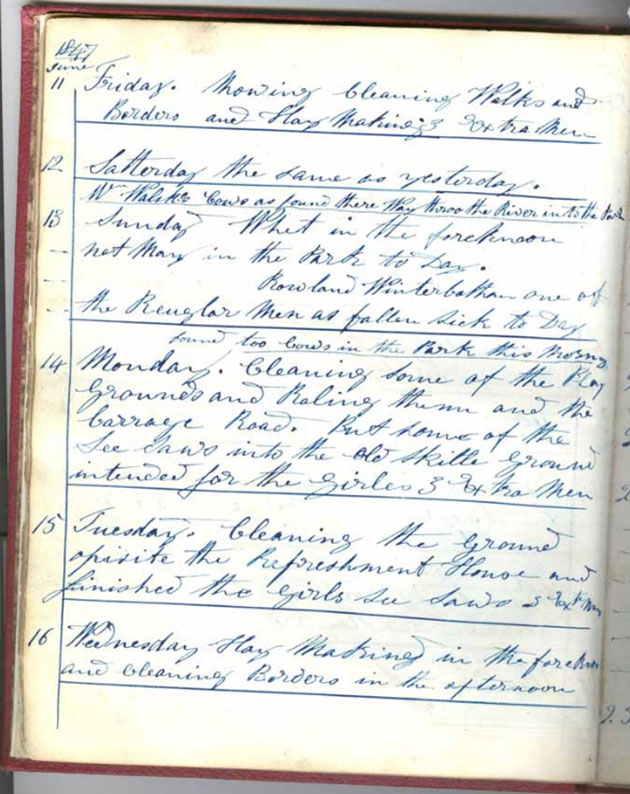 1847
June
11 Friday. Mowing Cleaning Walks and
Borders and Hay Making 3 Extra Men
12 Satterday the same as yesterday.
Wm Walkks Cows as found there Way throo the River into the Park
13 Sunday Whet in the forenoon
not Many in the Park to Day.
Rowland Winterbotham one of
the Reuglar Men as fallen Sick to Day
found too Cows in the Park this Morng
14 Monday. Cleaning some of the Play
Grounds and Raling them and the
Carrage Road. Put some of the
See Saws into the old Skille Ground
intended for the Girles 3 Extra Men
15 Tuesday. Cleaning the Ground
opisite the Refreshment House and
finished the Girls See Saws 3 Ext Men
16 Wednesday Hay Making in the forenoon
and Cleaning Borders in the afternoon